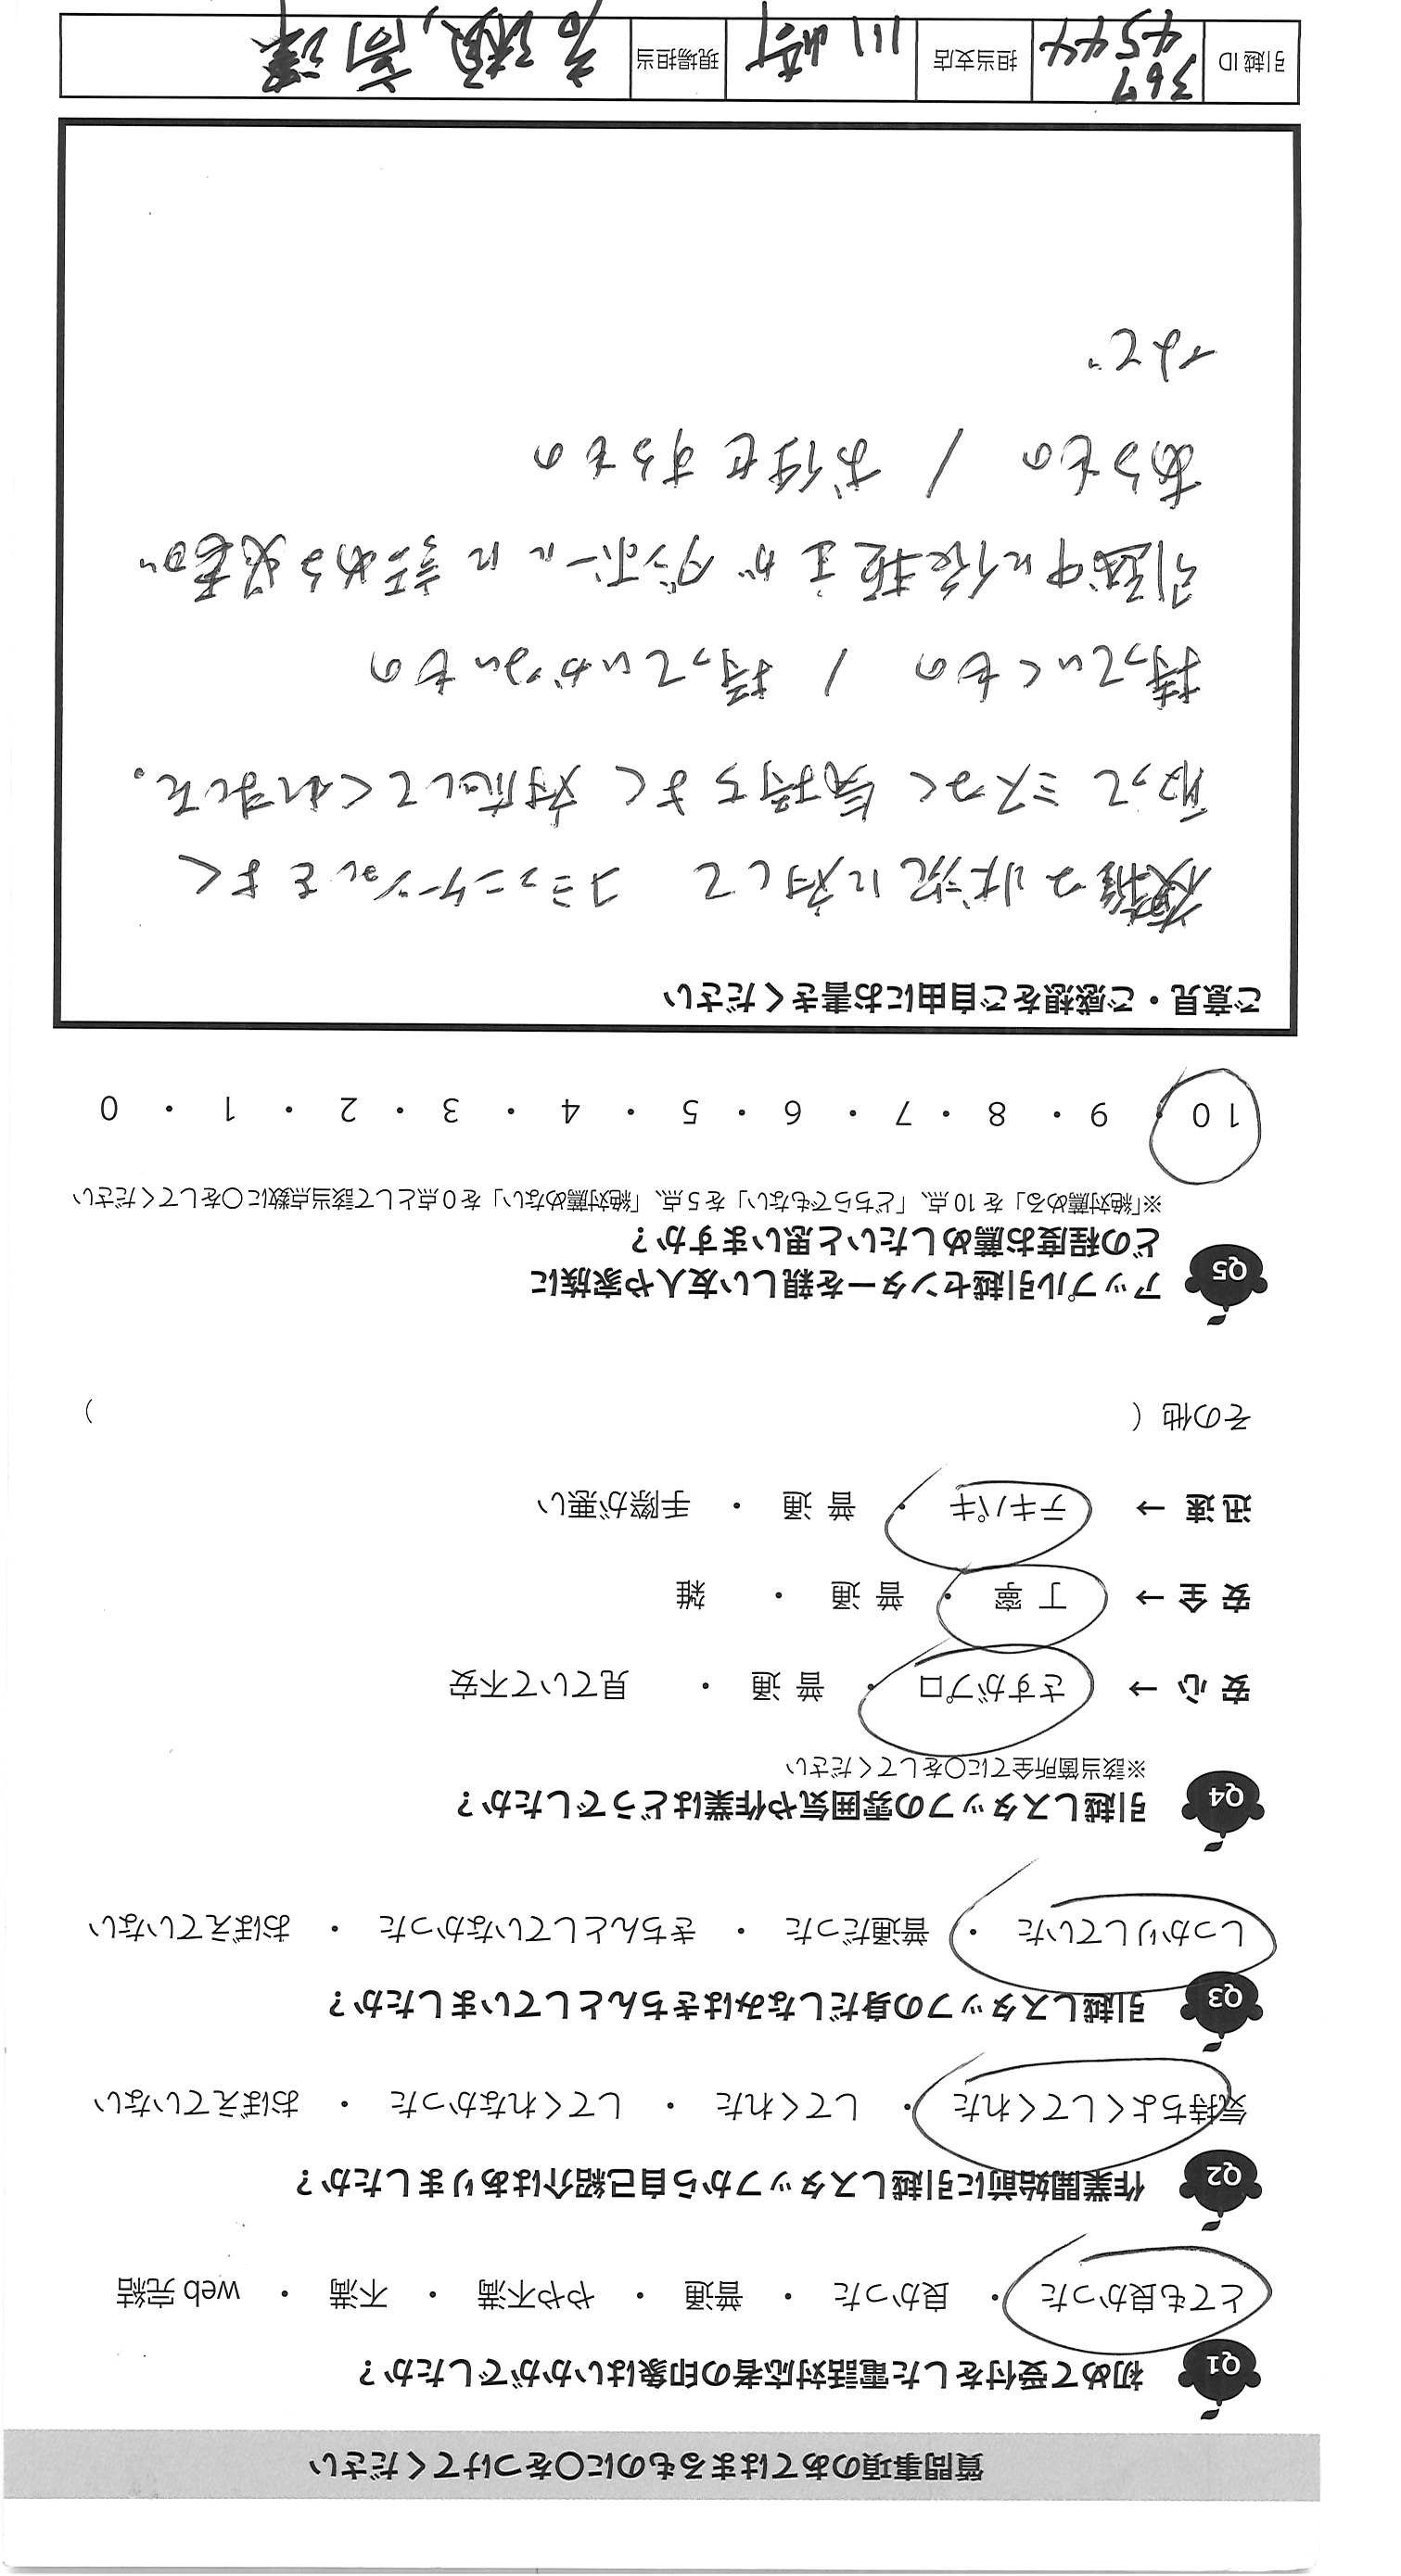 質問事項のあてはまるものに〇をつけてください
Q1 初めて受付をした電話対応者の印象はいかがでしたか?
とても良かった ・ 良かった ・ 普通 ・ やや不満 ・ 不満 ・ web 完結
Q2 作業開始前に引越しスタッフから自己紹介はありましたか?
気持ちよくしてくれた ・ してくれた ・ してくれなかった ・ おぼえていない
Q3 引越しスタッフの身だしなみはきちんとしていましたか?
しっかりしていた ・ 普通だった ・ きちんとしていなかった ・ おぼえていない
Q4 引越しスタッフの雰囲気や作業はどうでしたか?
※該当箇所全てに〇をしてください
安 心 → さすがプロ ・ 普 通 ・ 見ていて不安
安 全 → 丁 寧 ・ 普 通 ・ 雑
迅 速 → テキパキ ・ 普 通 ・ 手際が悪い
その他 ( )
Q5 アップル引越センターを親しい友人や家族に
どの程度お薦めしたいと思いますか?
※「絶対薦める」を 10 点、「どちらでもない」を 5 点、「絶対薦めない」を 0 点として該当点数に〇をしてください
10 ・ 9 ・ 8 ・ 7 ・ 6 ・ 5 ・ 4 ・ 3 ・ 2 ・ 1 ・ 0
ご意見・ご感想をご自由にお書きください
複雑な状況に対して コミュニケーションをよく
取って ミスなく 気持ちよく 対応してくれました。
持っていくもの / 持っていかないもの
引越中に依頼主が ダンボールに 詰める必要が
あるもの / お任せするもの
など
引越 ID 367 4544 担当支店 川崎 現場担当 高瀬, 高澤